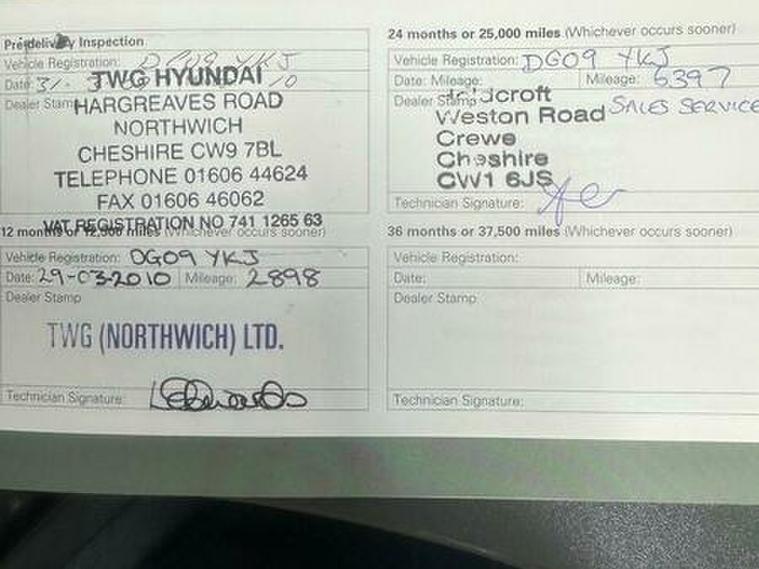 Pre-delivery Inspection
Vehicle Registration: DG09 YKJ
Date: 31
TWG HYUNDAI
Dealer Stamp
HARGREAVES ROAD
NORTHWICH
CHESHIRE CW9 7BL
TELEPHONE 01606 44624
FAX 01606 46062
VAT REGISTRATION NO 741 1265 63
12 months or 12,500 miles (Whichever occurs sooner)
Vehicle Registration: DG09 YKJ
Date: 29-03-2010 Mileage: 2898
Dealer Stamp
TWG (NORTHWICH) LTD.
Technician Signature:
24 months or 25,000 miles (Whichever occurs sooner)
Vehicle Registration: DG09 YKJ
Date: Mileage: Mileage: 6397
Dealer Stamp
SALES SERVICE
Weston Road
Crewe
Cheshire
CW1 6JS
Technician Signature:
36 months or 37,500 miles (Whichever occurs sooner)
Vehicle Registration:
Date: Mileage:
Dealer Stamp
Technician Signature: